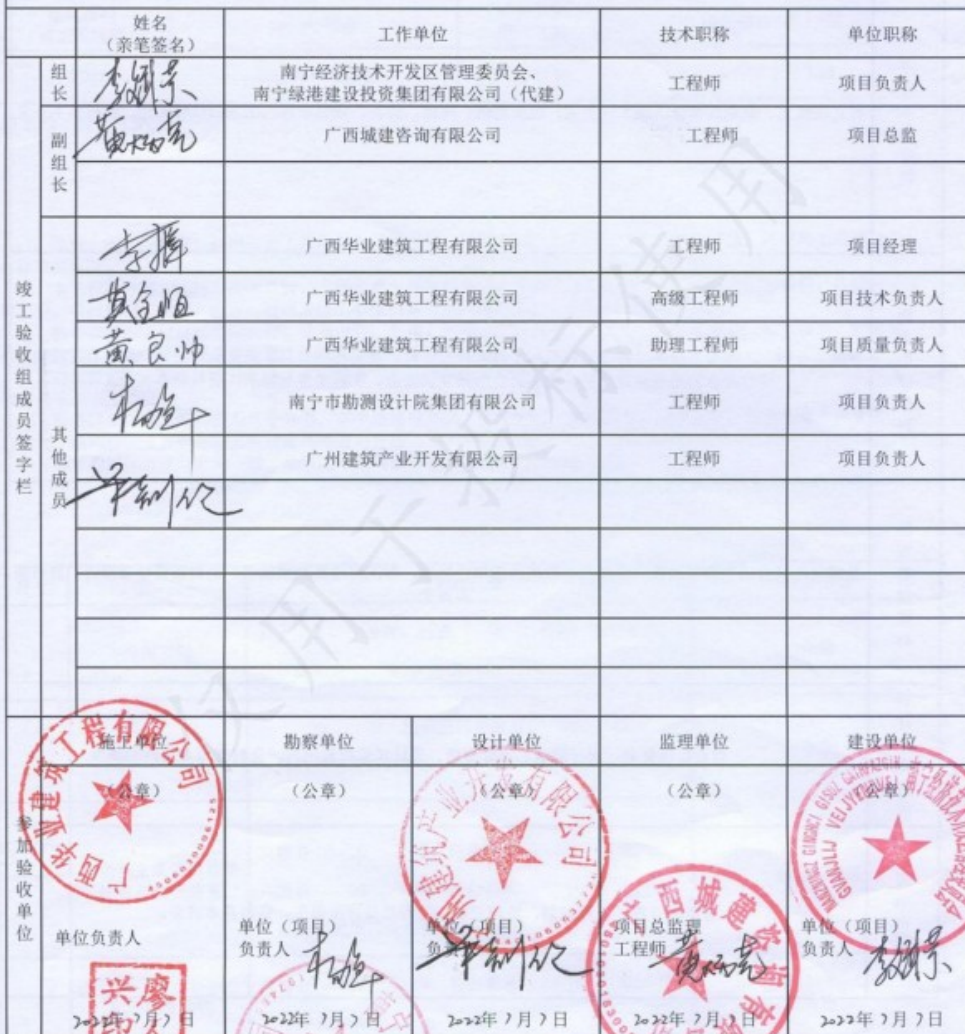 姓名
（亲笔签名）
工作单位
技术职称
单位职称
竣工验收组成员签字栏
组长
南宁经济技术开发区管理委员会、
南宁绿港建设投资集团有限公司（代建）
工程师
项目负责人
副组长
广西城建咨询有限公司
工程师
项目总监
其他成员
李辉
广西华业建筑工程有限公司
工程师
项目经理
广西华业建筑工程有限公司
高级工程师
项目技术负责人
黄良帅
广西华业建筑工程有限公司
助理工程师
项目质量负责人
南宁市勘测设计院集团有限公司
工程师
项目负责人
广州建筑产业开发有限公司
工程师
项目负责人
仅用于投标使用
参加验收单位
施工单位
勘察单位
设计单位
监理单位
建设单位
（公章）
（公章）
（公章）
（公章）
（公章）
广西华业建筑工程有限公司
单位负责人
单位（项目）
负责人
单位（项目）
负责人
项目总监理
工程师
单位（项目）
负责人
2022年7月7日
2022年7月7日
2022年7月7日
2022年7月7日
2022年7月7日